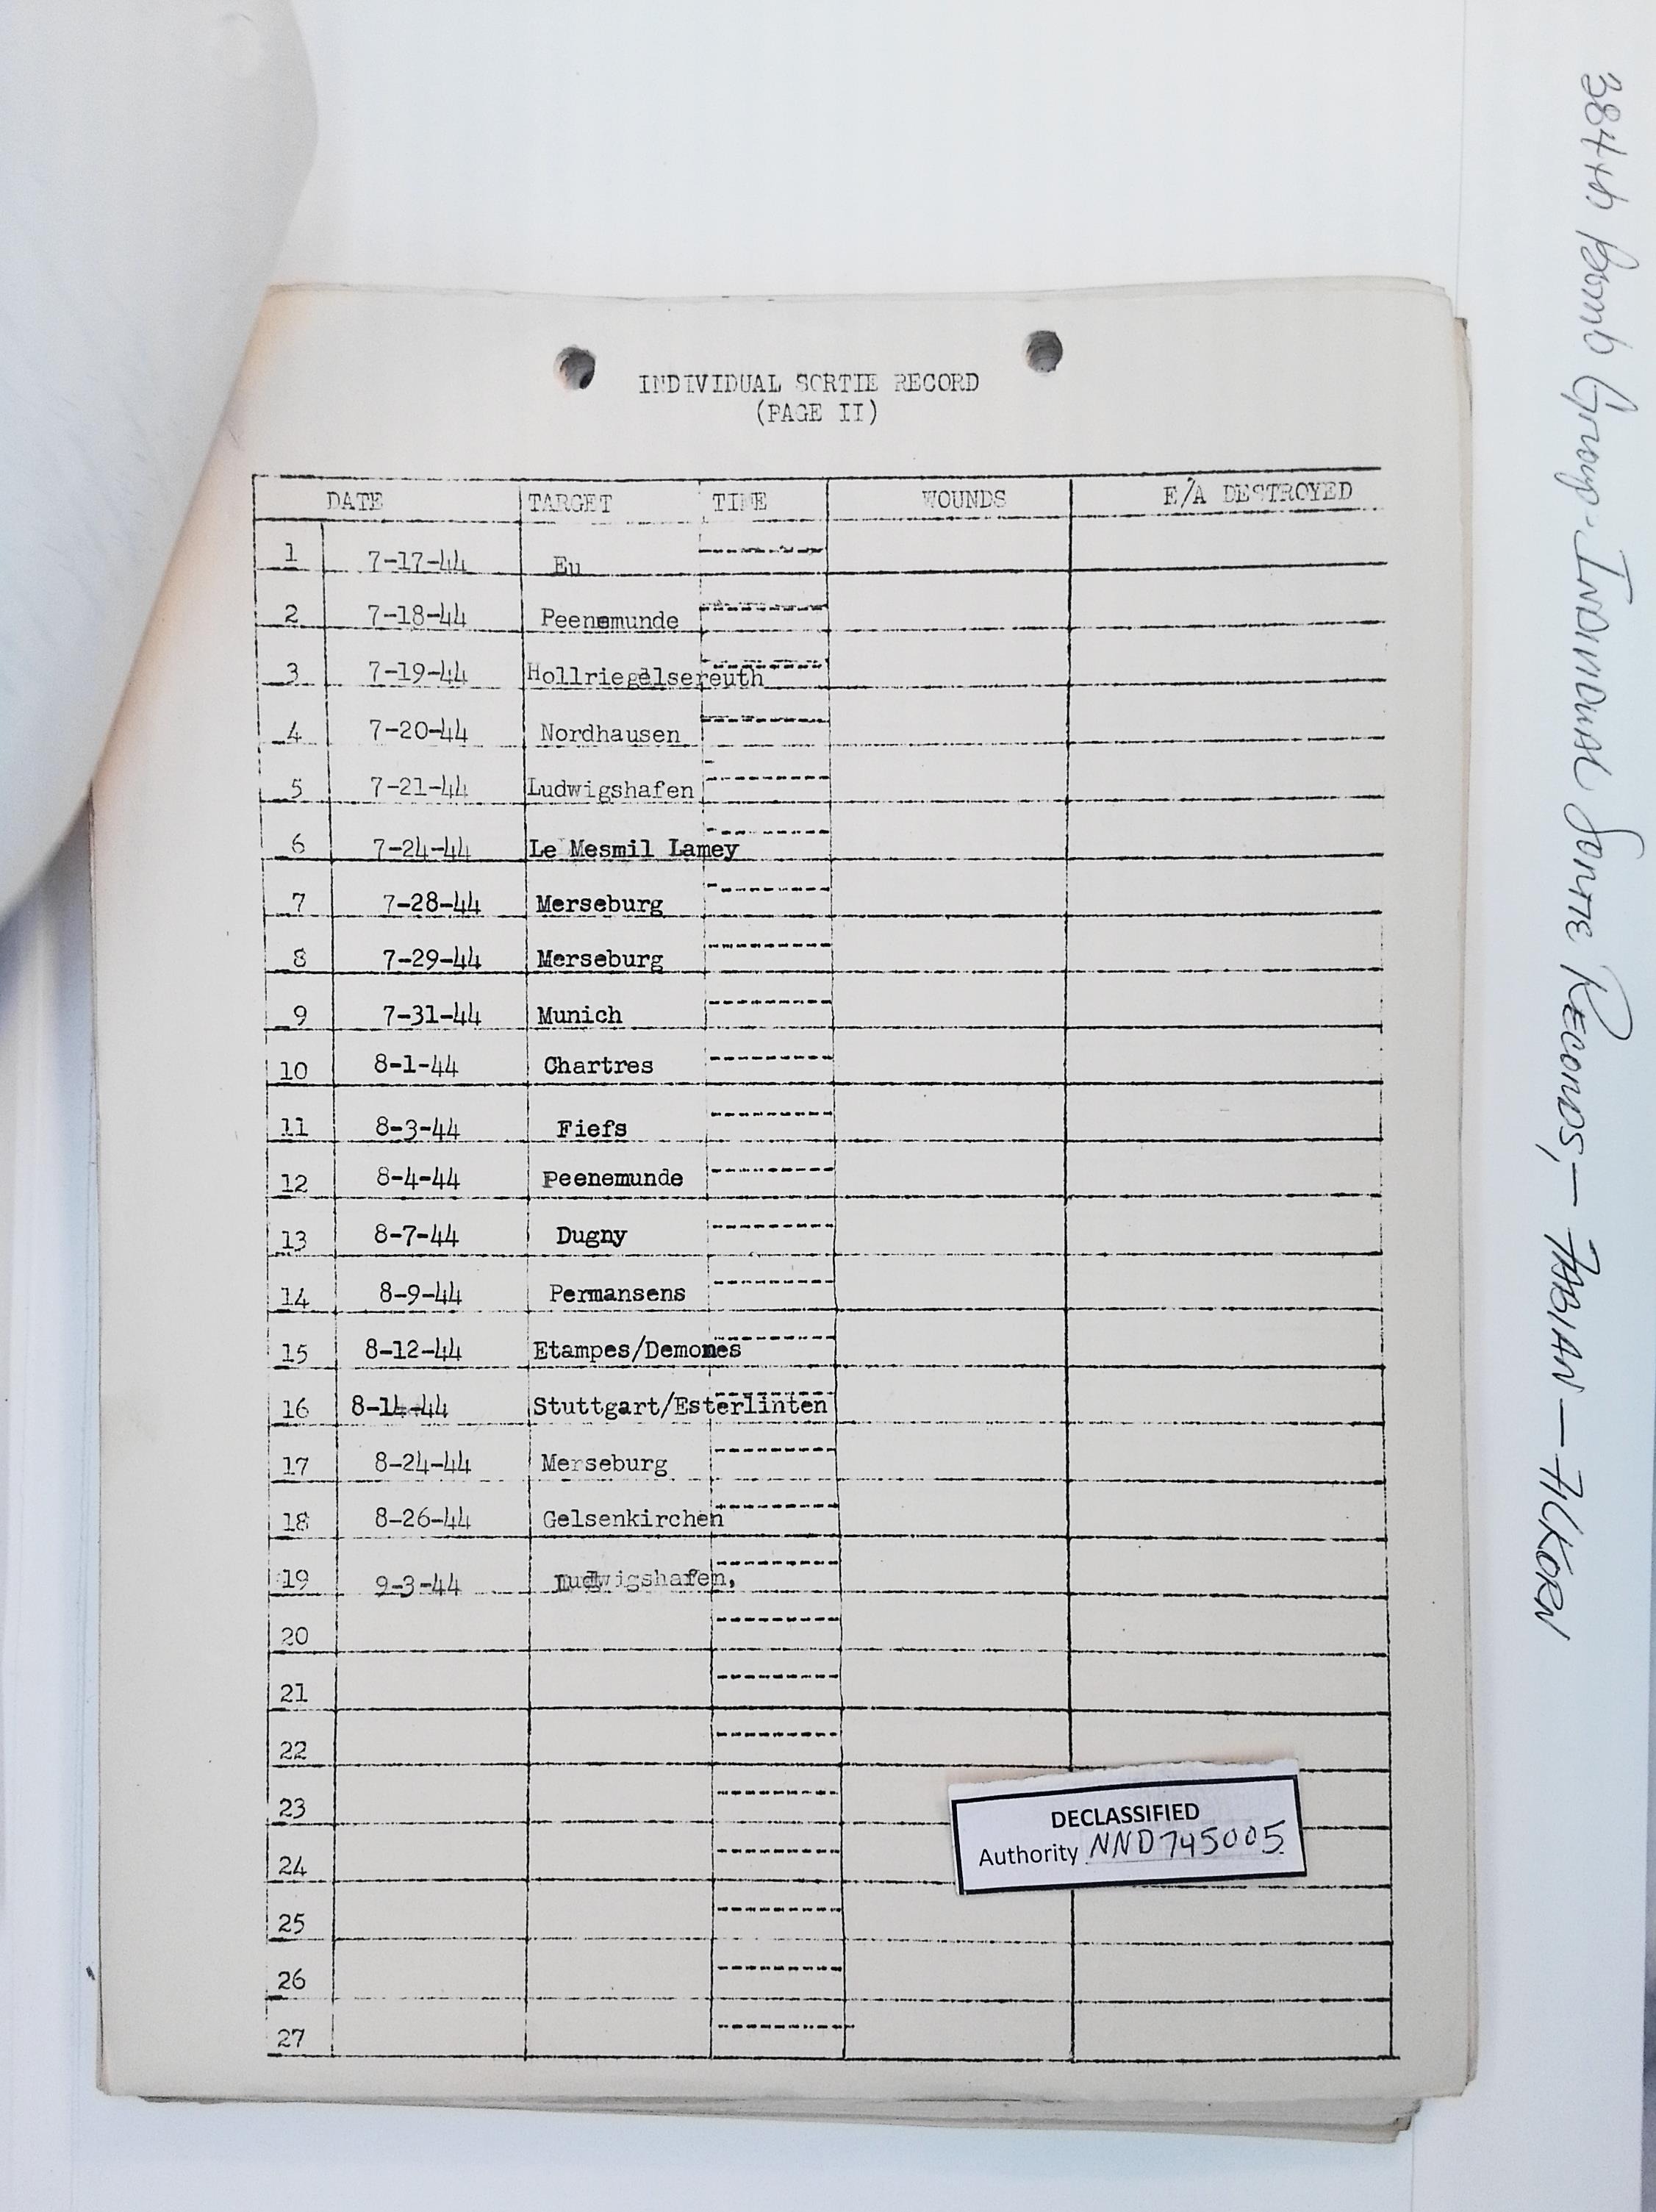 INDIVIDUAL SORTIE RECORD
(PAGE II)
DATE TARGET TIME WOUNDS E/A DESTROYED
1 7-17-44 Eu
2 7-18-44 Peenemunde
3 7-19-44 Hollriegelsereuth
4 7-20-44 Nordhausen
5 7-21-44 Ludwigshafen
6 7-24-44 Le Mesmil Lamey
7 7-28-44 Merseburg
8 7-29-44 Merseburg
9 7-31-44 Munich
10 8-1-44 Chartres
11 8-3-44 Fiefs
12 8-4-44 Peenemunde
13 8-7-44 Dugny
14 8-9-44 Permansens
15 8-12-44 Etampes/Demones
16 8-14-44 Stuttgart/Esterlinten
17 8-24-44 Merseburg
18 8-26-44 Gelsenkirchen
19 9-3-44 Ludwigshafen,
20
21
22
23
24
25
26
27
DECLASSIFIED
Authority NND745005
384th Bomb Group - Individual Sortie Records, - FABIAN - FICKORN